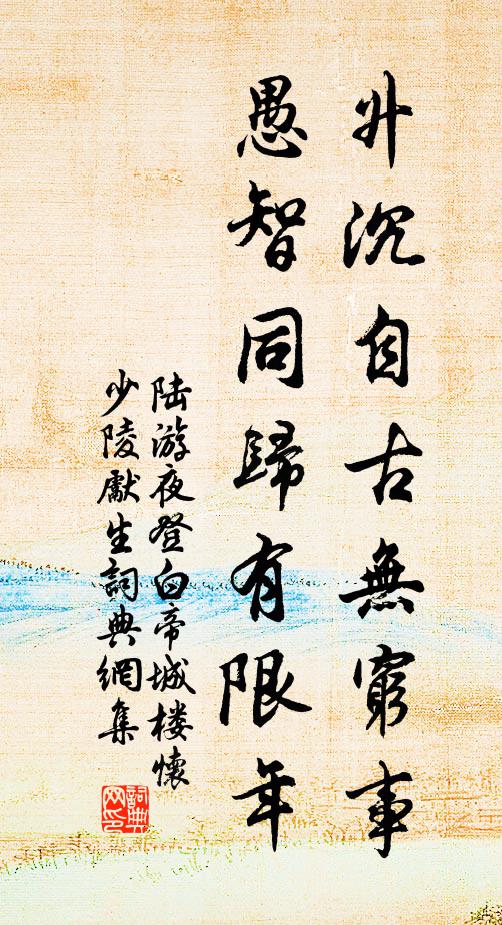 升沉自古無窮事
愚智同歸有限年
陆游夜登白帝城楼懷
少陵獻生詞典網集
詞典
网印